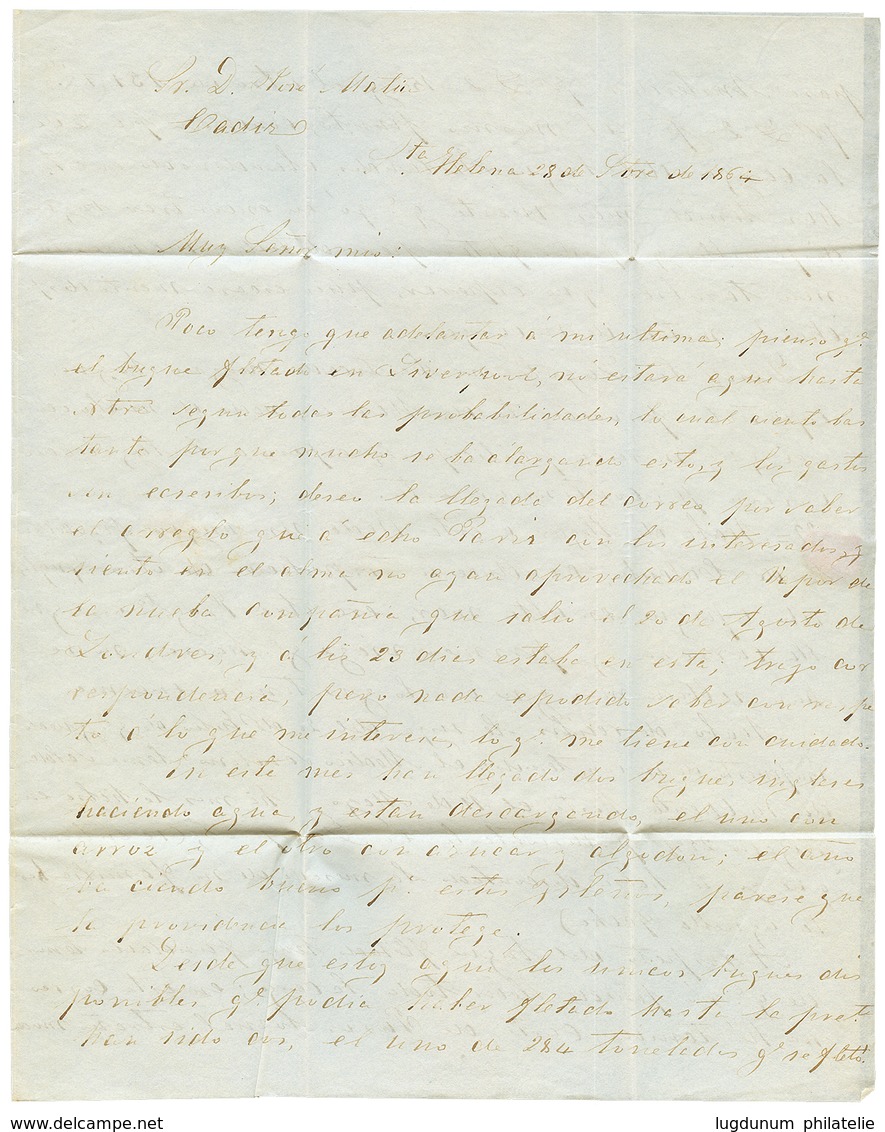 Sr. D. José Matia
Cadiz
Sta. Helena 28 de Stbre de 1864
Muy Señor mio:
Poco tengo que adelantar á mi ultima; pienso qe.
el buque fletado en Liverpool, nó estará aqui hasta
segun todas las probabilidades, lo cual siento bas
tante porque mucho se ba álargando esto, y los gastos
son ecsesibos; deseo la llegada del correo por saber
el arreglo que a echo Paris con los interesados, y
siento en el alma no ayan aprovechado el Vapor de
la nueba Compañia que salio el 20 de Agosto de
Londres, y á los 23 dias estaba en esta; trajo cor
respondencia, pero nada e podido saber con respe
to a lo que me interesa, lo qe. me tiene con cuidado.
En este mes han llegado dos buques ingleses
haciendo agua, y estan descargando, el uno con
arroz y el otro con azucar y algodon; el año
ba ciendo bueno pa. estos Ysleños, parese que
la providencia los protege.
Desde que estoy aqui los unicos buques dis
ponibles qe. podia haber fletado hasta la pret.
han sido dos, el uno de 284 toneladas qe. se fletó
www.delcampe.net
lugdunum philatelie